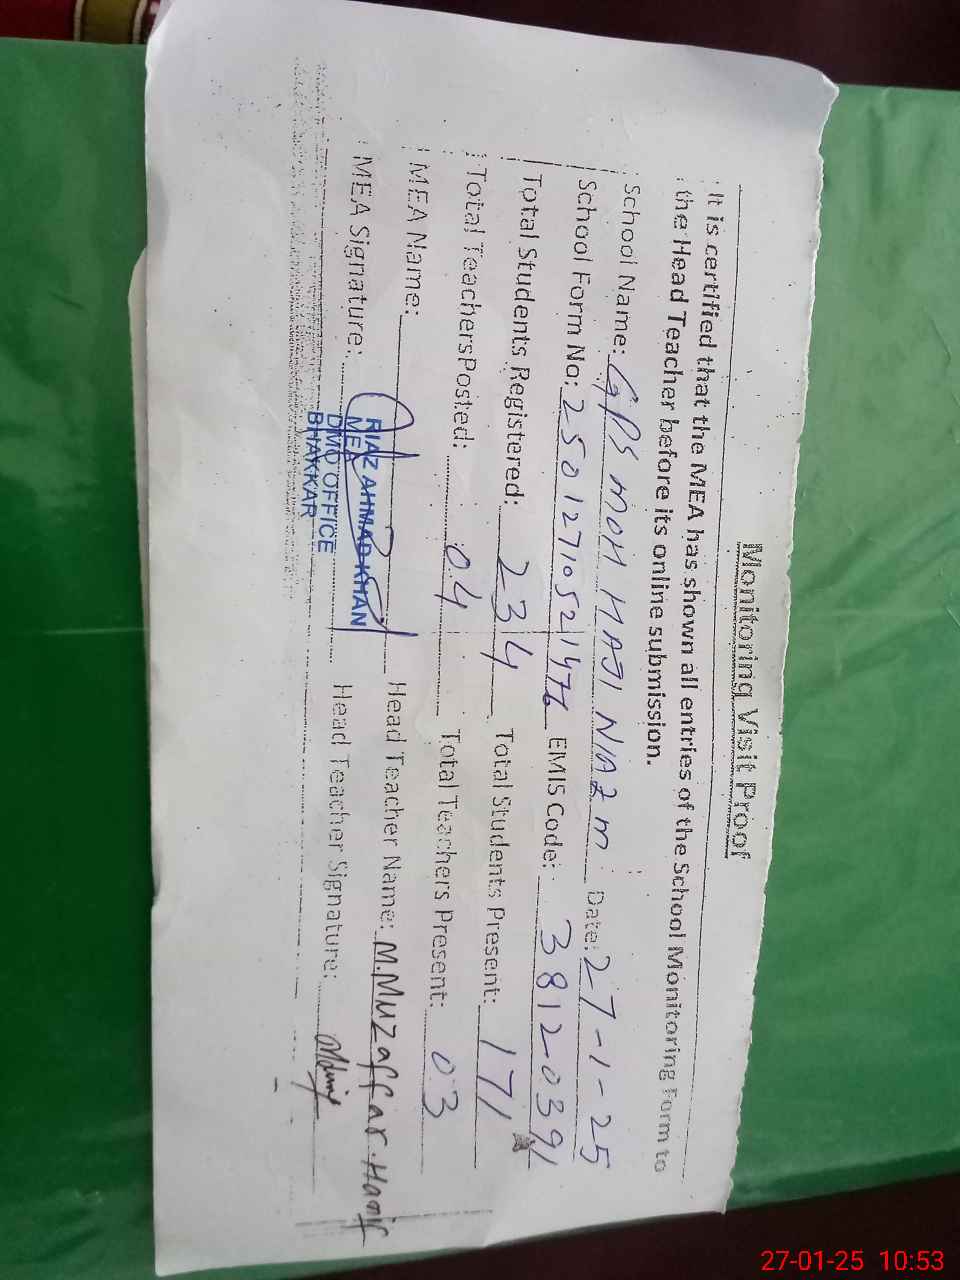 Monitoring Visit Proof
It is certified that the MEA has shown all entries of the School Monitoring Form to
the Head Teacher before its online submission.
School Name: GPS MOH HAJI NIAZ M Date: 27-1-25
School Form No: 25012710521476 EMIS Code: 38120391
Total Students Registered: 234 Total Students Present: 171
Total Teachers Posted: 04 Total Teachers Present: 03
MEA Name: RIAZ AHMAD KHAN Head Teacher Name: M.Muzaffar Hanif
MEA
MEA Signature: DMO OFFICE Head Teacher Signature:
BHAKKAR
27-01-25 10:53